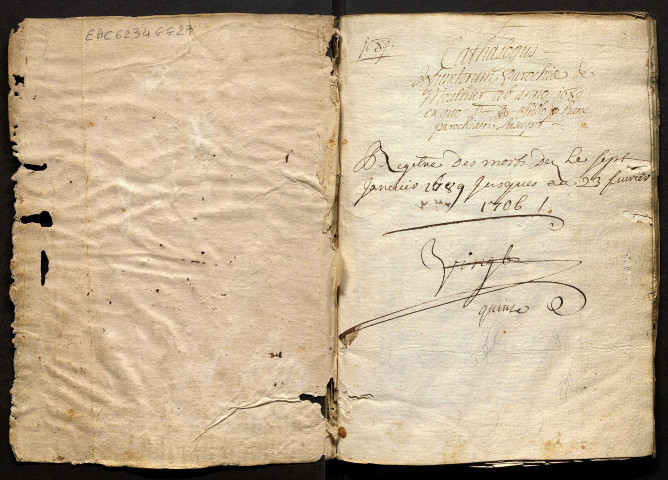 EAC6234GG27
1689.
Cathalogus
defunctorum Parochiæ de
Mouthier ab anno 1689
ex quo
parochiam suscepi
Registre des morts des Le sept
Janvier 1689 Jusques au 23 fevrier
1706 /.
Vingt
quinse